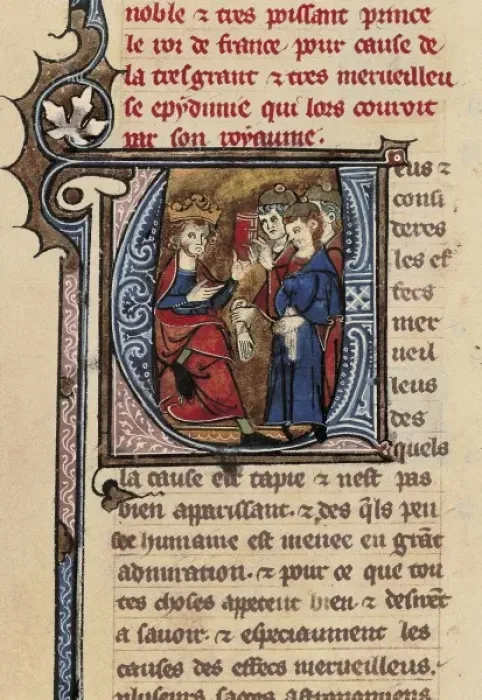 noble ⁊ tres poissant prince
le roi de france pour cause de
la tresgrant ⁊ tres merueilleu
se epydimie qui lors couroit
par son royaume.
Ueus ⁊
consi
deres
les ef
fecs
mer
ueil
leus
des
quels
la cause est tapie ⁊ nest pas
bien apparissant. ⁊ des q̄ls pen
see humaine est menee en grāt
admiration. ⁊ pour ce que tou
tes choses appetent bien ⁊ desirēt
a sauoir. ⁊ especiaument les
causes des effecs merueilleus.
plusieurs sages astronomiens